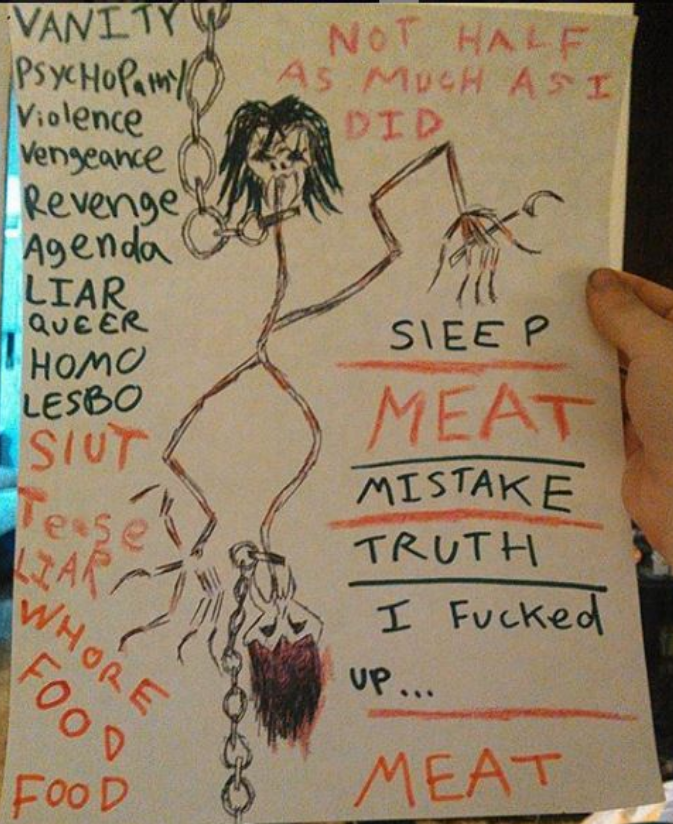 VANITY
PSYCHOPathY
Violence
Vengeance
Revenge
Agenda
LIAR
QUEER
HOMO
LESBO
SlUT
Tease
LIAR
WHORE
FOOD
FOOD
NOT HALF
AS MUCH AS I
DID
SlEEP
MEAT
MISTAKE
TRUTH
I Fucked
UP...
MEAT